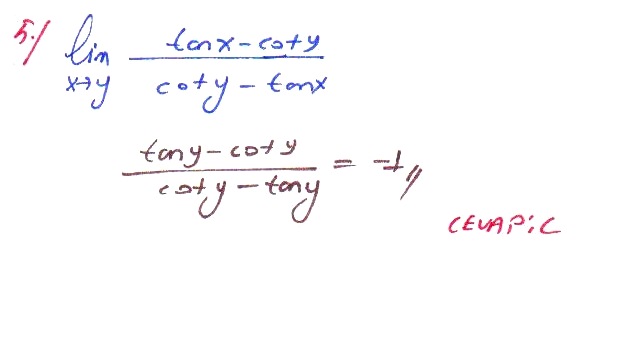 5./ lim x→y (tanx - coty) / (coty - tanx)
(tany - coty) / (coty - tany) = -1//
CEVAP: C